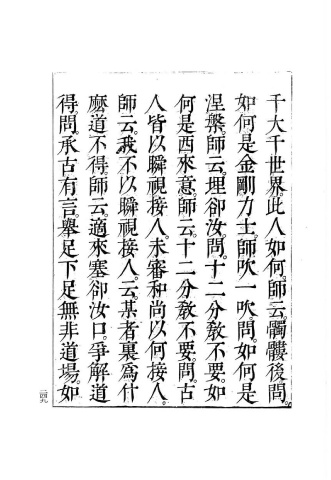 千大千世界此人如何。師云。髑髏後問。
如何是金剛力士。師吹一吹。問。如何是
涅槃。師云。埋卻汝。問。十二分敎不要。如
何是西來意。師云。十二分敎不要。問。古
人皆以瞬視接人。未審和尚以何接人。
師云。我不以瞬視接人。云。某者裏爲什
麽道不得。師云。適來塞卻汝口。爭解道
得。問。承古有言。舉足下足無非道場。如
二四九